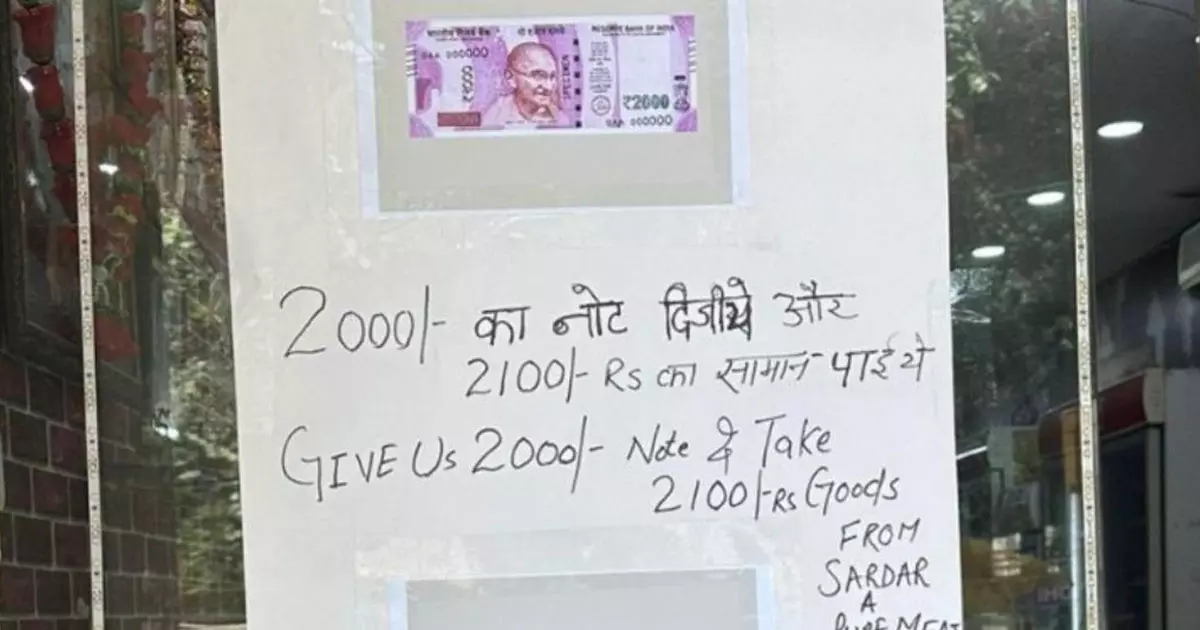 भारतीय रिज़र्व बैंक
RESERVE BANK OF INDIA
0AA 000000
₹2000
SPECIMEN
₹2000
0AA 000000
2000/- का नोट दिजीये और
2100/- Rs का सामान पाईये
GIVE US 2000/- Note & Take
2100/-Rs Goods
FROM
SARDAR
A
PURE MEAT